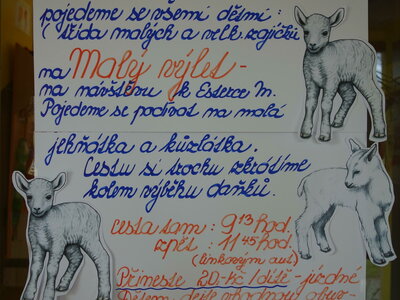 pojedeme se všemi dětmi :
(třída malých a velk. zajíčků
na Malý výlet -
na návštěvu k Esterce M.
Pojedeme se podívat na malá
jehňátka a kůzlátka.
Cestu si trochu zkrátíme
kolem výběhu daňků.
cesta tam : 9 13 hod.
zpět : 11 45 hod.
(linkovým aut)
Přineste 20,-Kč / dítě - jízdné
Dětem dejte vhodnou obuv-